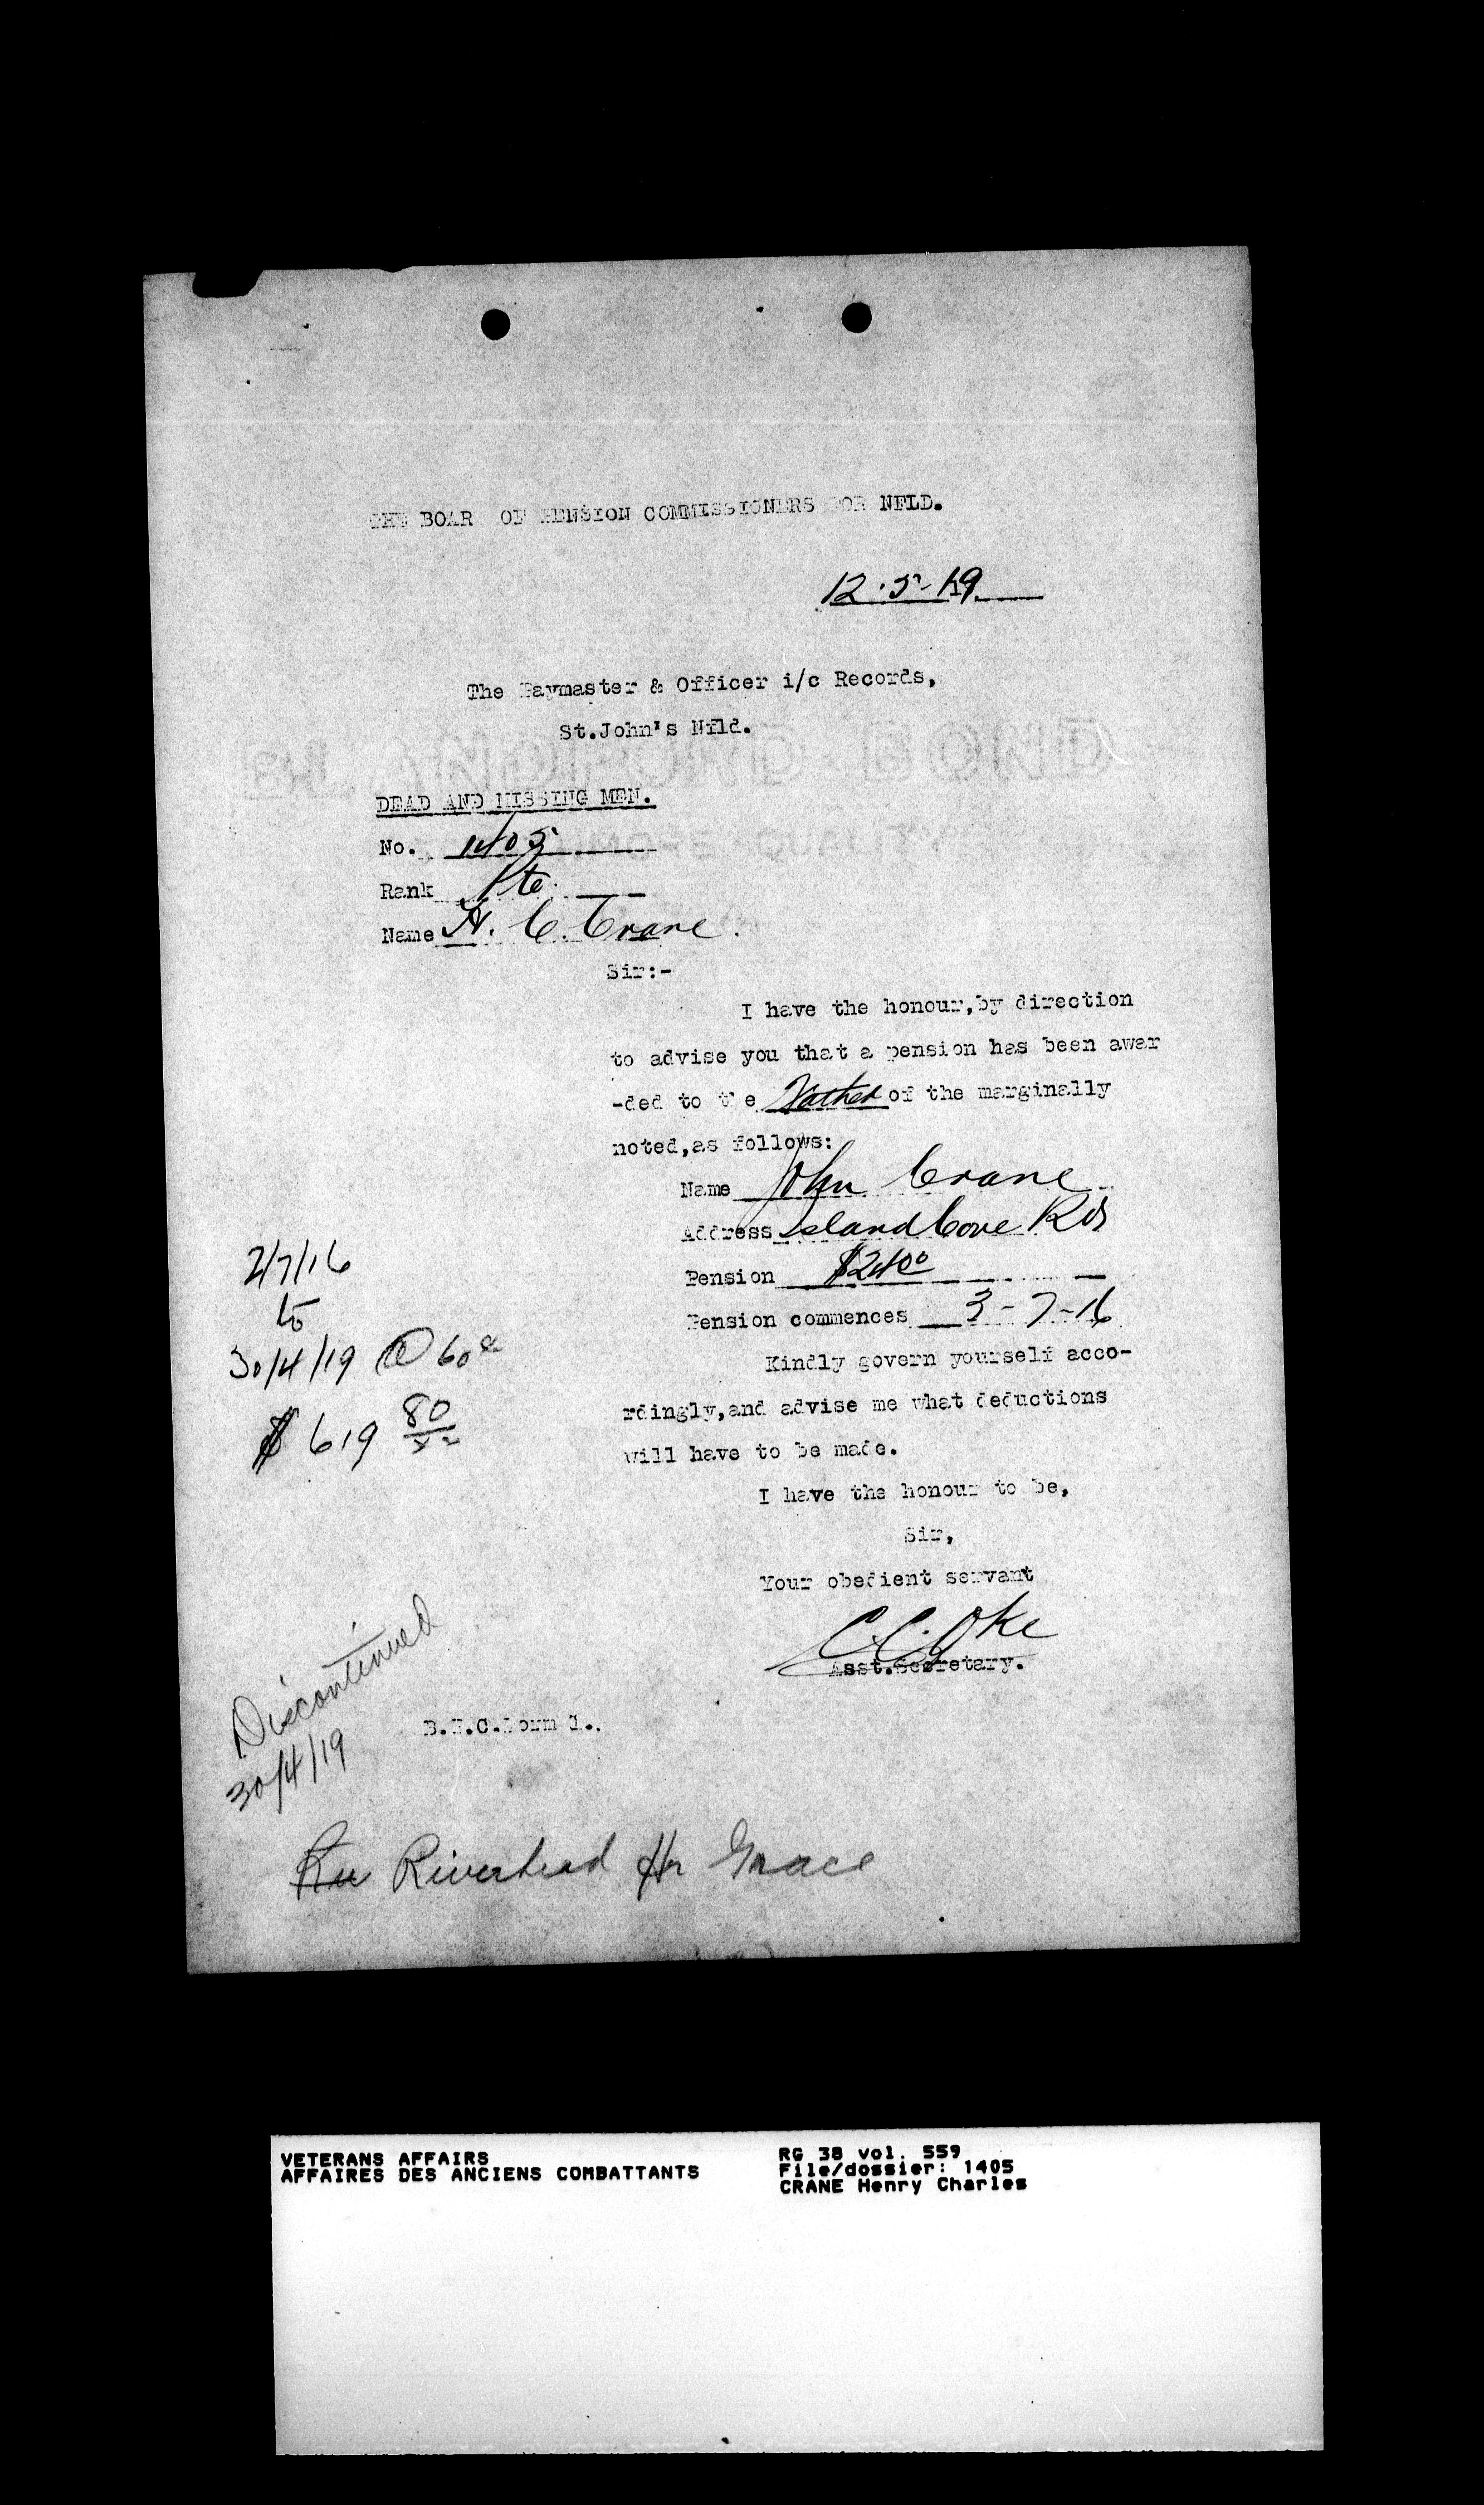 THE BOAR OF PENSION COMMISSIONERS FOR NFLD.
12-5-19
The Paymaster & Officer i/c Records,
St.John's Nfld.
BLANDFORD BOND
QUALITY
DEAD AND MISSING MEN.
No. 1405
Rank Pte.
Name H. C. Crane.
Sir:-
I have the honour,by direction
to advise you that a pension has been awar
-ded to t e Father of the marginally
noted,as follows:
Name John Crane
Address Island Cove Rd
Pension $24000
Pension commences 3-7-16
Kindly govern yourself acco-
rdingly,and advise me what deductions
will have to be made.
I have the honour to be,
Sir,
Your obedient servant
C.C. Oke
Asst.Secretary.
2/7/16
to
30/4/19 @ 60¢
$619 80
Discontinued
30/4/19
B.P.C.Form
Riverhead Hr Grace
VETERANS AFFAIRS
AFFAIRES DES ANCIENS COMBATTANTS
RG 38 vol. 559
File/dossier: 1405
CRANE Henry Charles